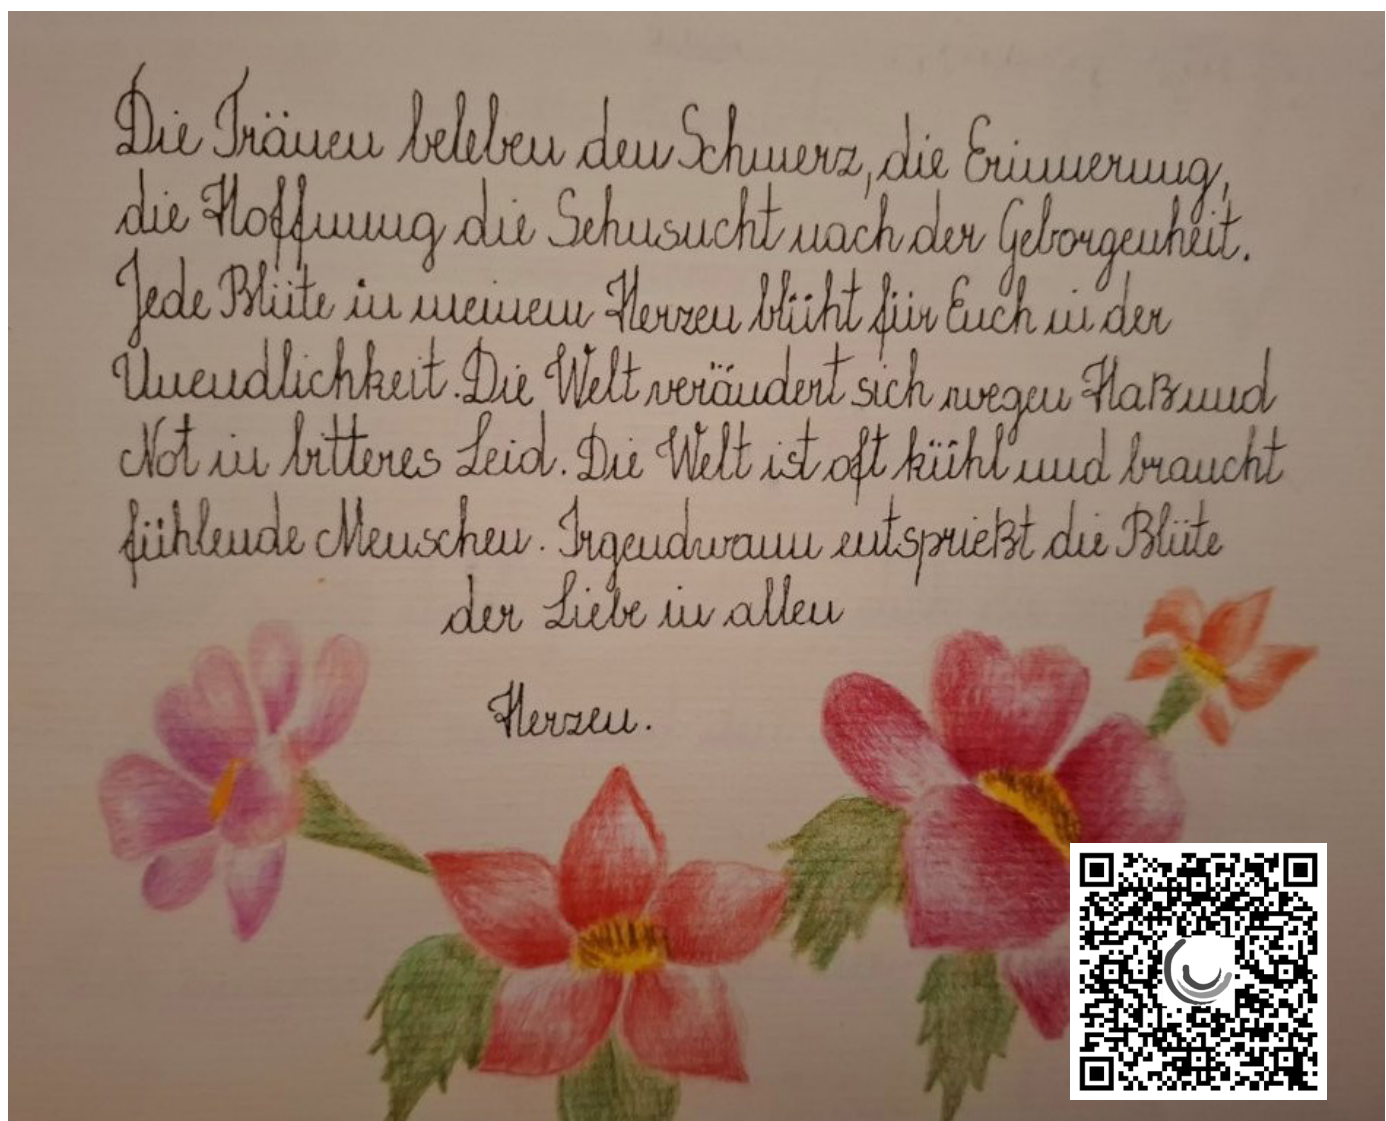 Die Tränen beleben den Schmerz, die Erinnerung,
die Hoffnung die Sehnsucht nach der Geborgenheit.
Jede Blüte in meinem Herzen blüht für Euch in der
Unendlichkeit. Die Welt verändert sich wegen Haß und
Not in bitteres Leid. Die Welt ist oft kühl und braucht
fühlende Menschen. Irgendwann entsprießt die Blüte
der Liebe in allen
Herzen.